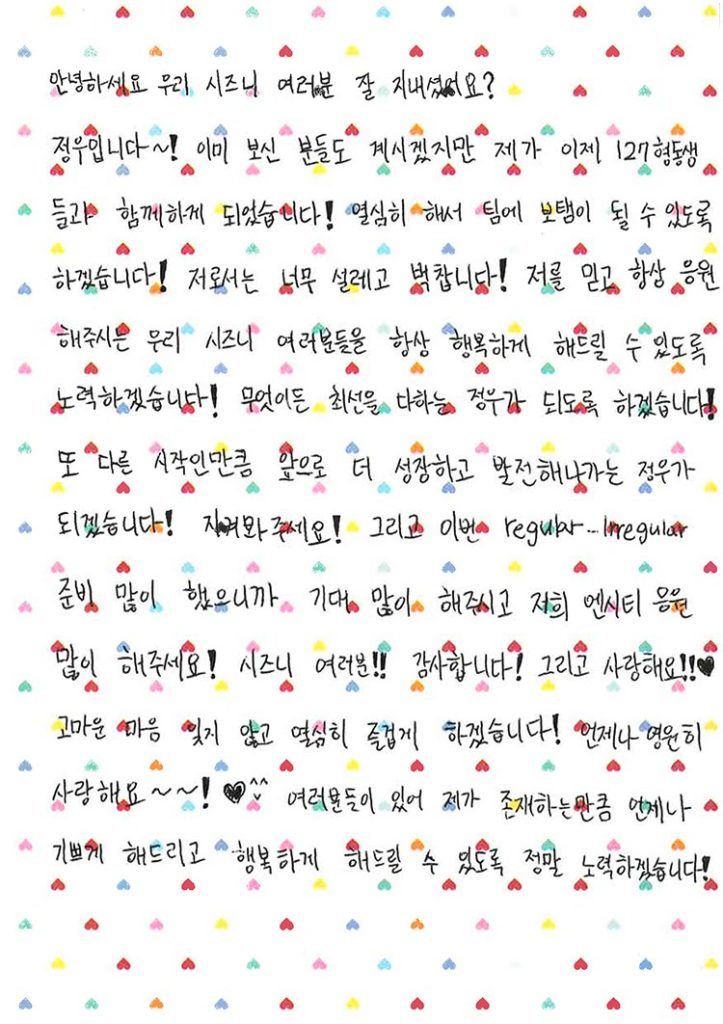 안녕하세요 우리 시즈니 여러분 잘 지내셨어요?
정우입니다~! 이미 보신 분들도 계시겠지만 제가 이제 127형동생
들과 함께하게 되었습니다! 열심히 해서 팀에 보탬이 될 수 있도록
하겠습니다! 저로서는 너무 설레고 벅찹니다! 저를 믿고 항상 응원
해주시는 우리 시즈니 여러분들을 항상 행복하게 해드릴 수 있도록
노력하겠습니다! 무엇이든 최선을 다하는 정우가 되도록 하겠습니다!
또 다른 시작인만큼 앞으로 더 성장하고 발전해나가는 정우가
되겠습니다! 지켜봐주세요! 그리고 이번 regular-irregular
준비 많이 했으니까 기대 많이 해주시고 저희 엔시티 응원
많이 해주세요! 시즈니 여러분!! 감사합니다! 그리고 사랑해요!!♥
고마운 마음 잊지 않고 열심히 즐겁게 하겠습니다! 언제나 영원히
사랑해요~~! ♥^^ 여러분들이 있어 제가 존재하는만큼 언제나
기쁘게 해드리고 행복하게 해드릴 수 있도록 정말 노력하겠습니다!